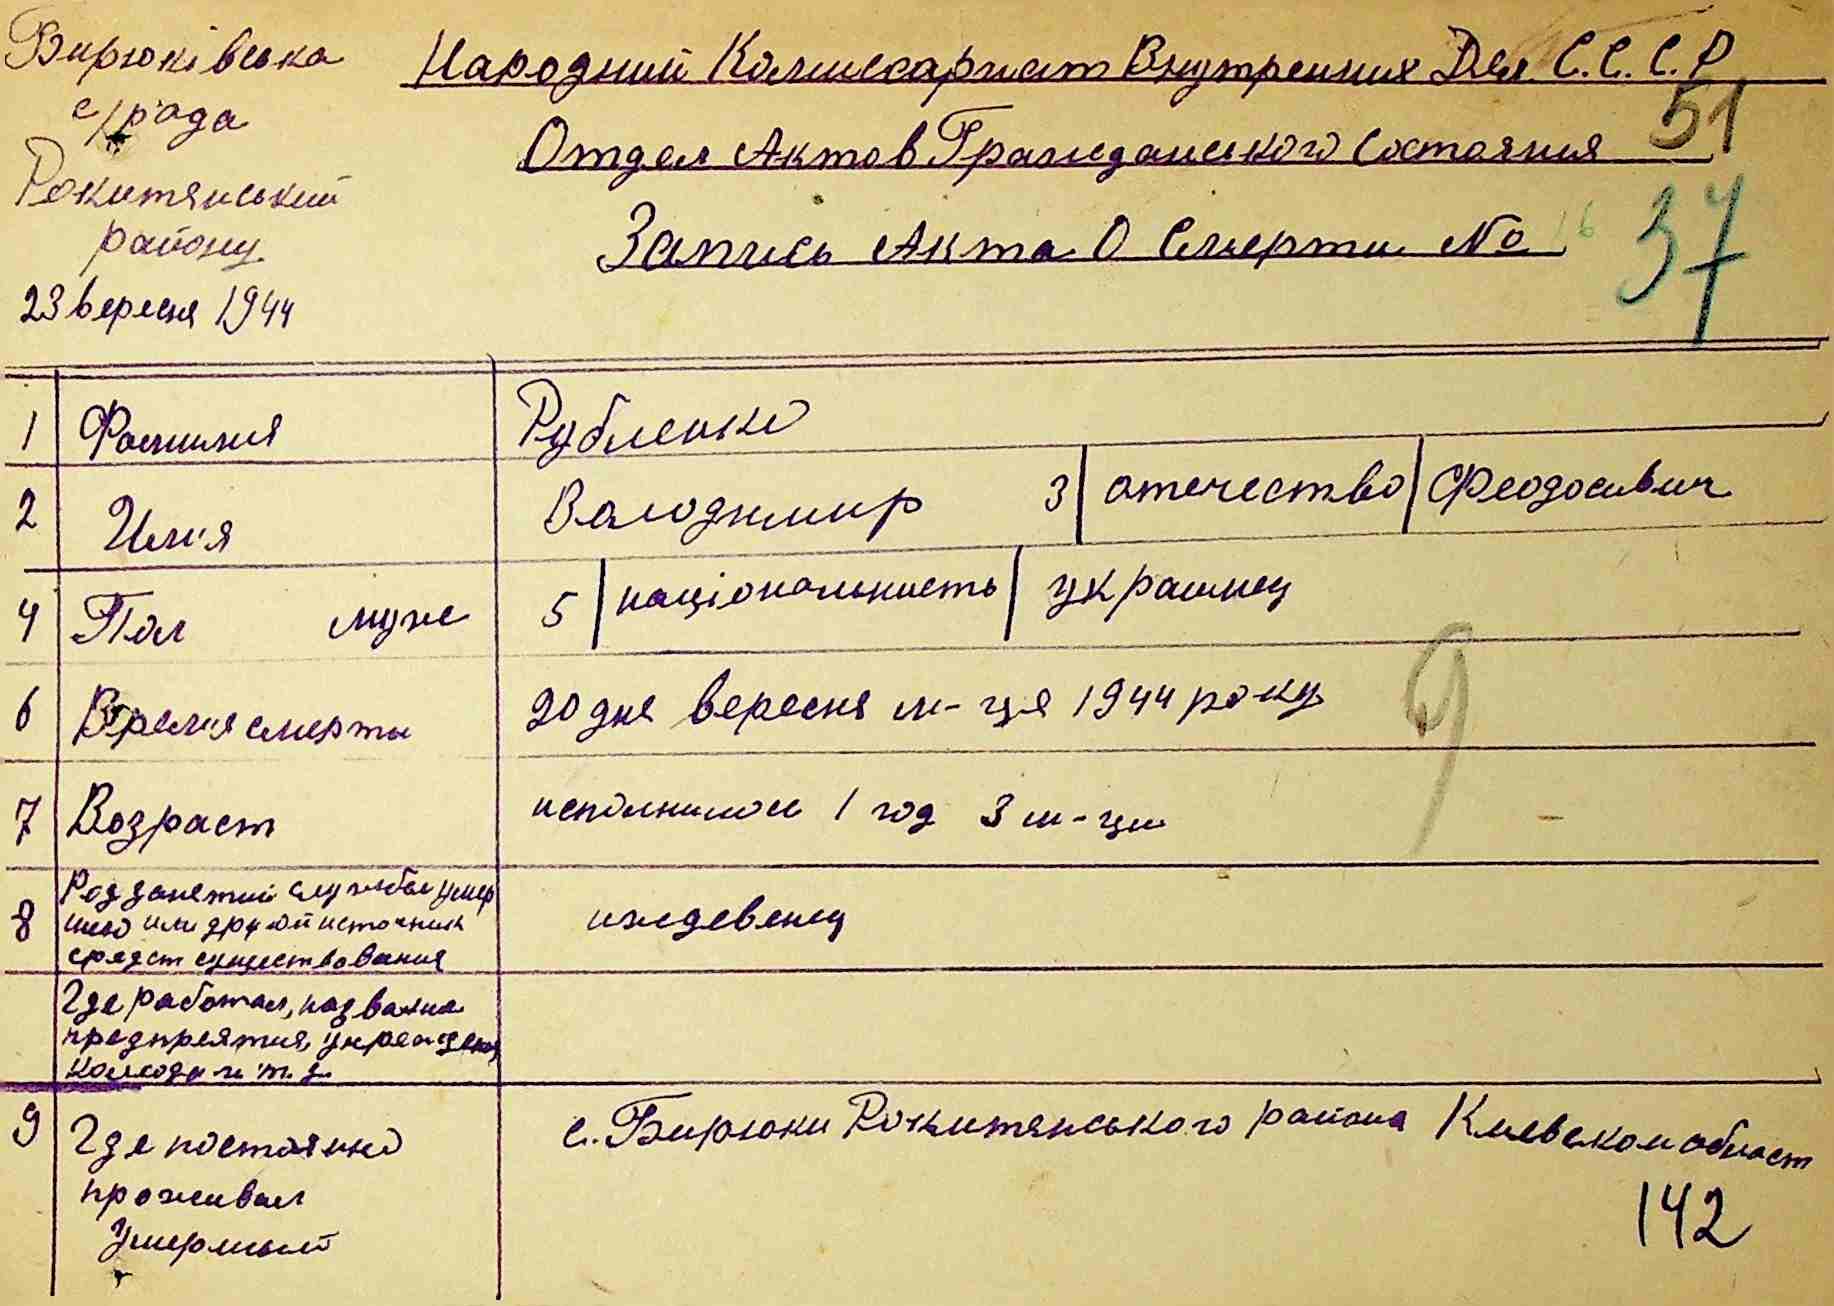 Бирюківська
с/рада
Рокитянський
району
23 вересня 1944
Народний Комиссариат Внутренних Дел С.С.С.Р
51
Отдел Актов Гражданського Состояния
Запись Акта О Смерти No 16
37
1 Фамилия Рубленко
2 Им'я Володимир 3 отечество Феодосивич
4 Пол муже 5 національность украинец
6 Врем'я смерты 20 дня вересня м-ця 1944 року
9
7 Возраст исполнилось 1 год 3 м-ци
8 Род занятий службы умер
шего или другой источник
средст существования
иждевенец
Где работал, название
предприятия, учреждения
колхоза и т.д.
9 Где постоянно
проживал
Умерший
с. Бирюки Рокитянського района Киевском област
142